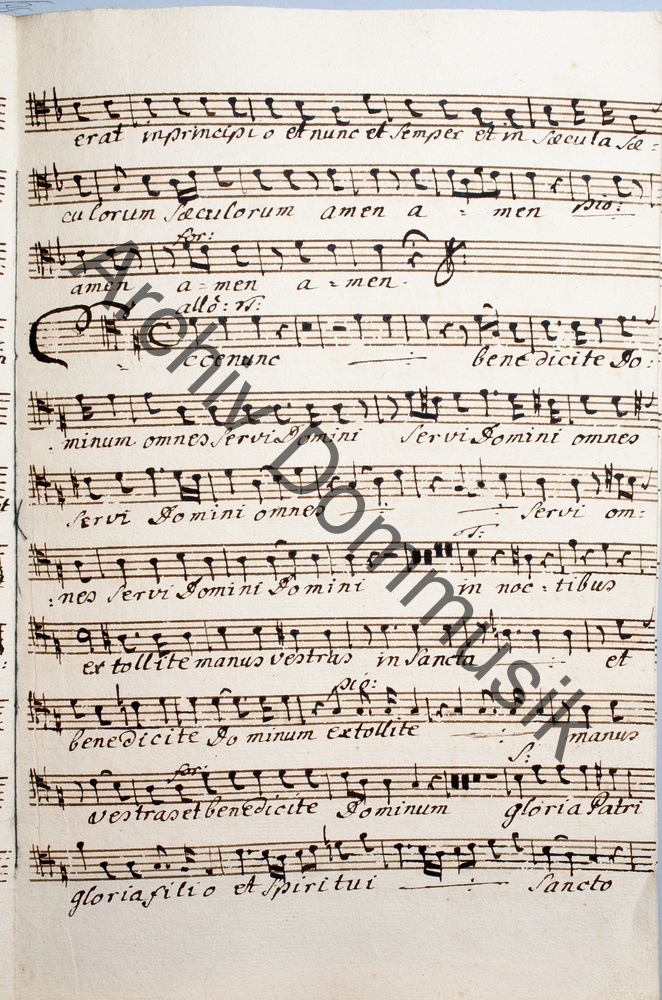 erat in principio et nunc et semper et in sæcula sæ-
culorum sæculorum amen a - men pio:
for:
amen a-men a-men.
allō: vt:
Ecce nunc benedicite Do:
:minum omnes servi Domini servi Domini omnes
servi Domini omnes servi om:
:nes servi Domini Domini in noc-tibus
extollite manus vestras in Sancta et
pio:
benedicite Dominum extollite manus
S:
for:
vestras et benedicite Dominum gloria Patri
gloria filio et Spiritui Sancto
Archiv Dommusik